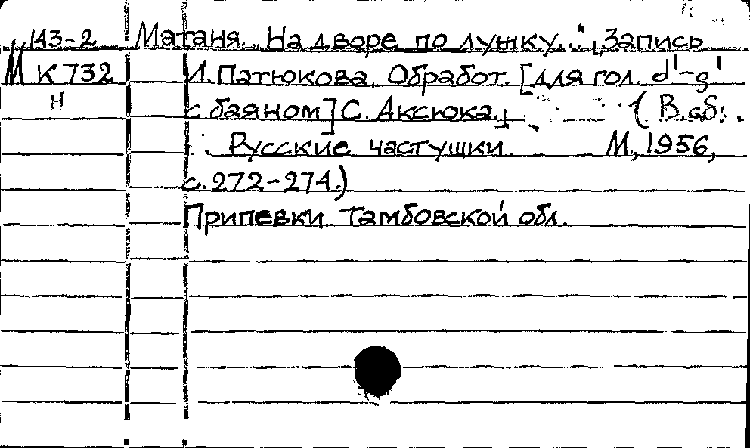 143-2 Матаня. „На дворе по лужку..." Запись
М К 732 И. Патюкова. Обработ. [для гол. d¹-g¹
Н с баяном] С. Аксюка. (В сб:
Русские частушки. М., 1956,
с. 272-274.)
Припевки Тамбовской обл.